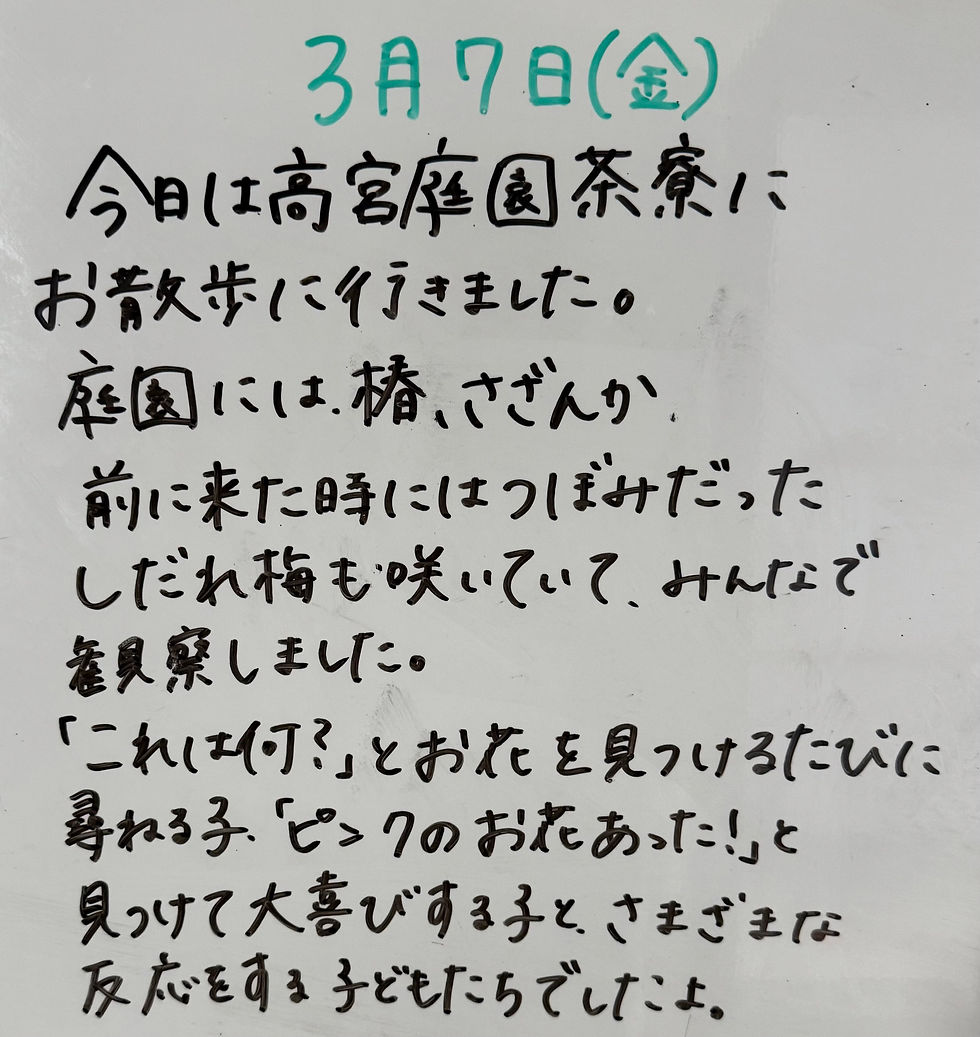 3月7日(金)
今日は高宮庭園茶寮に
お散歩に行きました。
庭園には、椿、さざんか、
前に来た時にはつぼみだった
しだれ梅も咲いていて、みんなで
観察しました。
「これは何?」とお花を見つけるたびに
尋ねる子、「ピンクのお花あった!」と
見つけて大喜びする子と、さまざまな
反応をする子どもたちでしたよ。